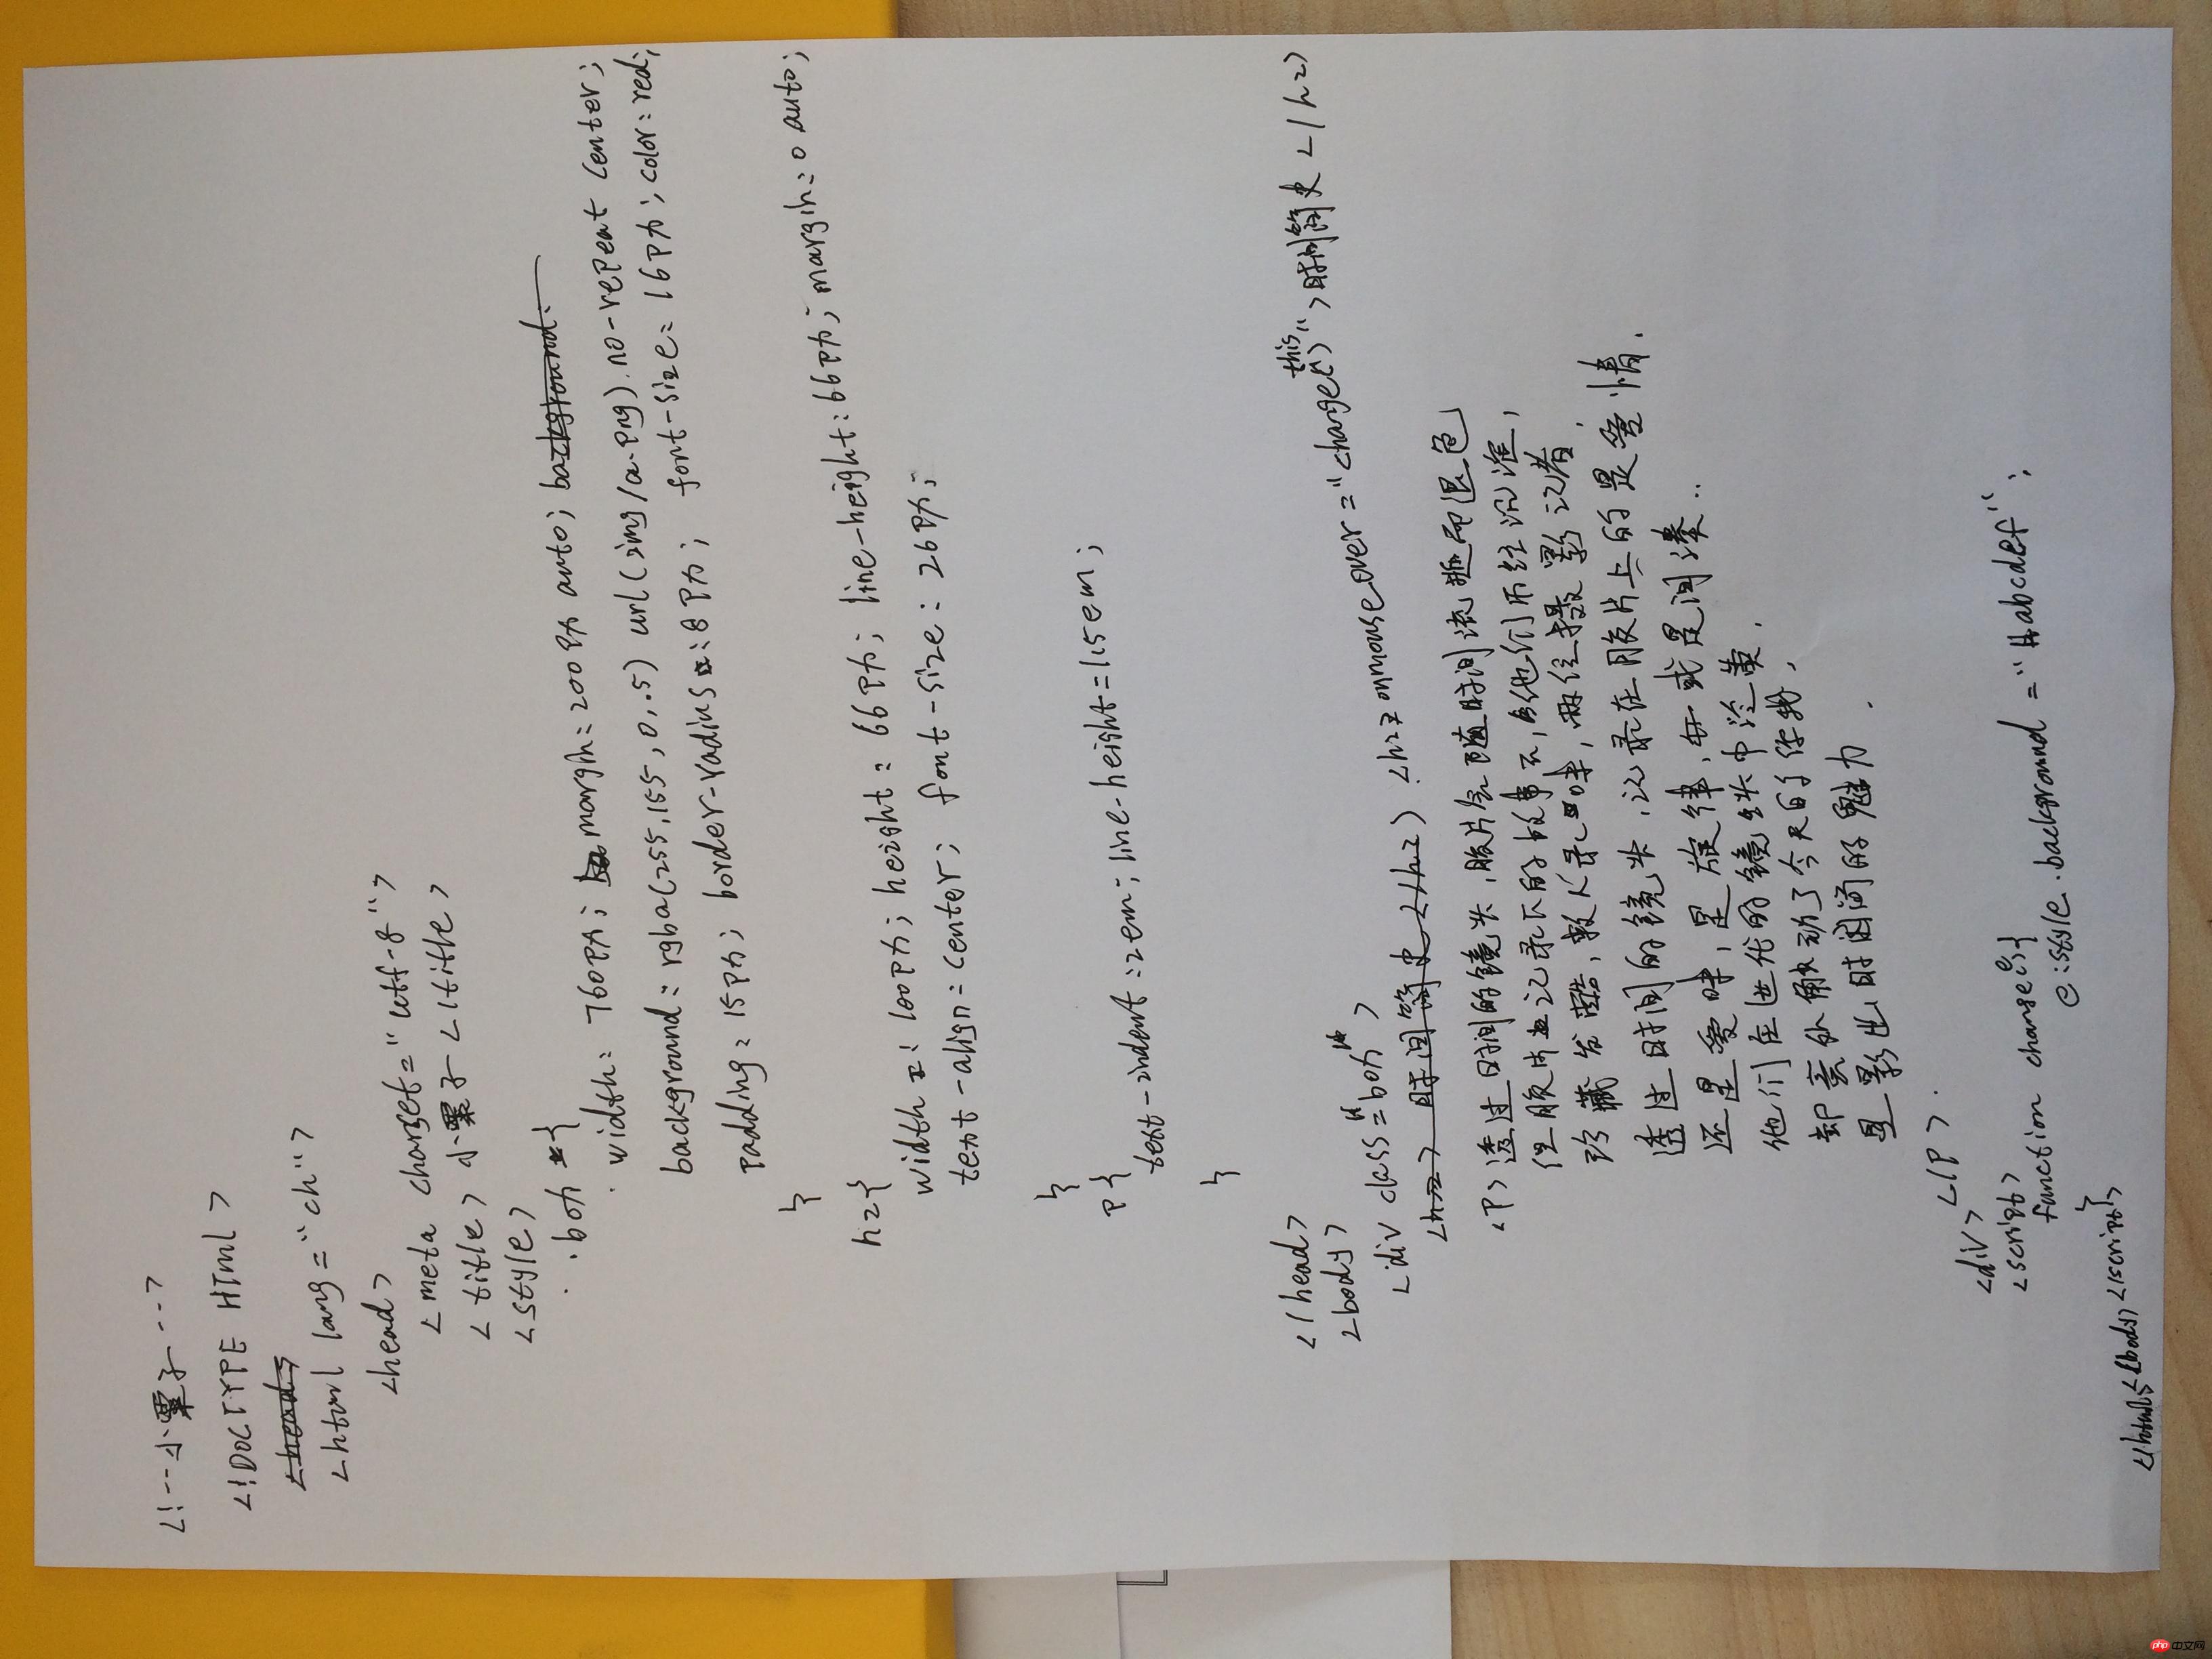 <!--小栗子--->
<!DOCTYPE HTml>
<html lang="ch">
<head>
<meta charset="utf-8">
<title>小栗子</title>
<style>
.box {
width: 760px; margin: 200px auto;
background: rgba(255,155,0,.5) url(img/a.png) no-repeat center;
padding: 15px; border-radius: 8px; font-size: 16px; color: red;
}
h2{
width: 100px; height: 66px; line-height: 66px; margin: 0 auto;
text-align: center; font-size: 26px;
}
p{
text-indent: 2em; line-height: 1.5em;
}
</head>
<body>
<div class="box">
<h2 onmouseover="change(this)">时间简史</h2>
<p>透过时间的镜头,胶片会随时间流逝而退色
但胶片上记录下的故事不,他们历经沉淀,
珍藏发酵,敦人寻味,两位摄影记者,
透过时间的镜头,记录在胶片上的是爱情.
还是爱味,是旋律,亦或是间凑..
他们在近代的镜头中泛黄.
却意外触动了今天的你我.
显影出时间的魅力.
</p>
<div>
<script>
function change(e){
e.style.background="#abcdef";
}
</script>
</body>
</html>
php中文网